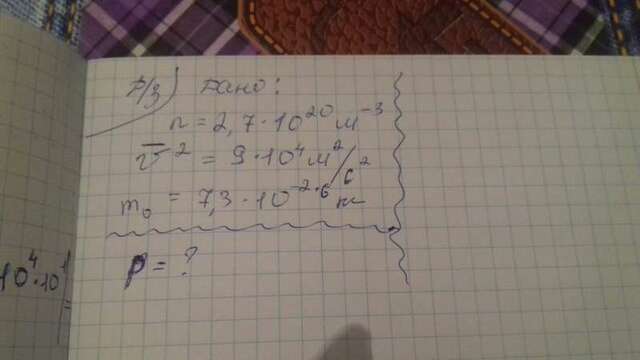 Р/з) Дано:
n = 2,7 · 10²⁰ м⁻³
v̅² = 9 · 10⁴ м²/с²
m₀ = 7,3 · 10⁻²⁶ кг
p = ?
10⁴ · 10¹
=